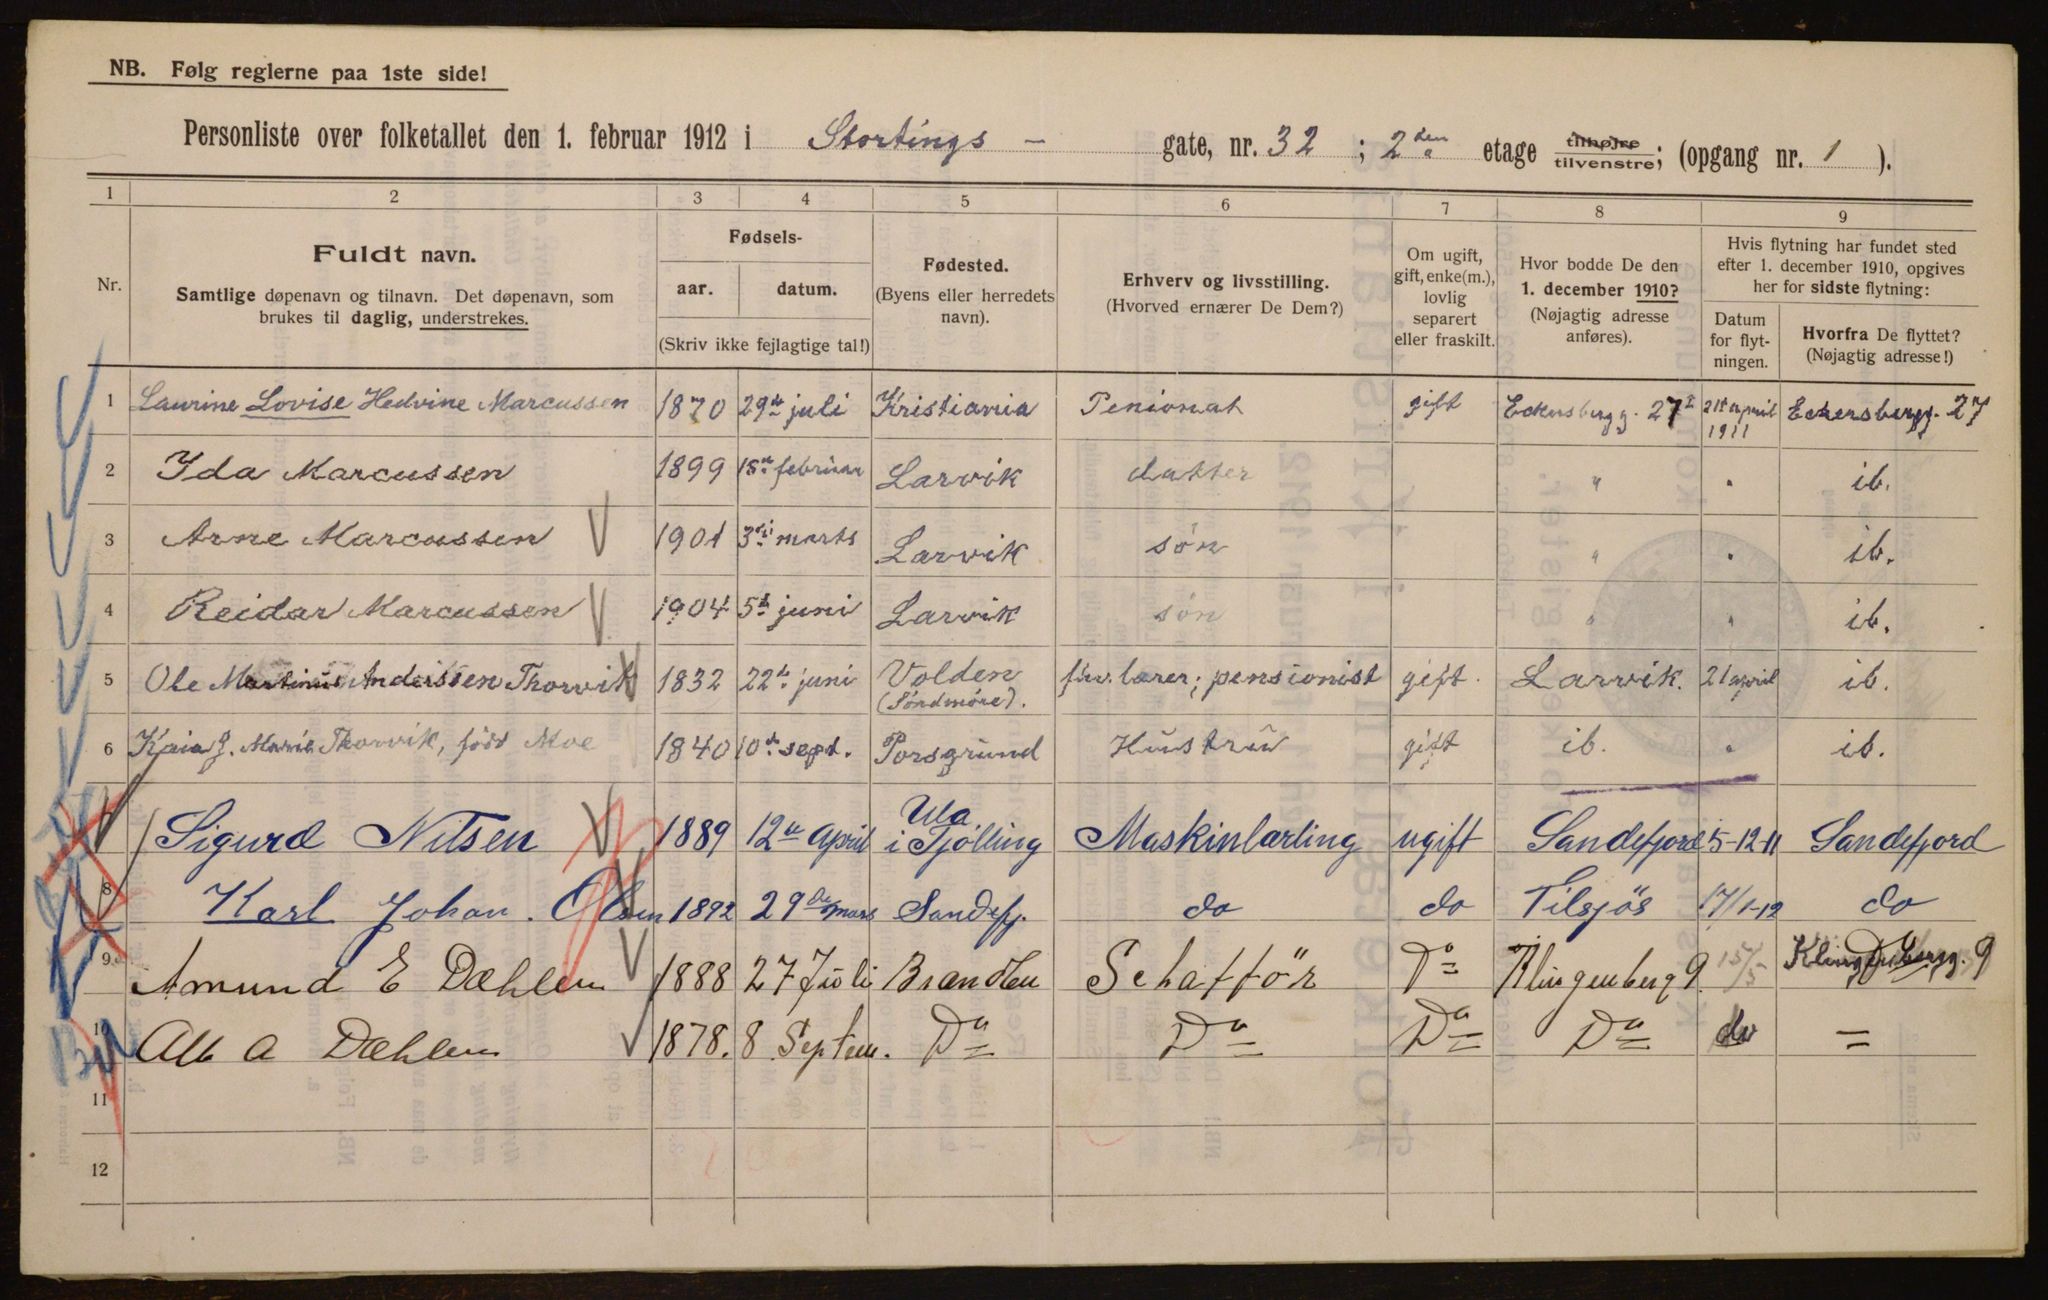 NB. Følg reglerne paa 1ste side!
Personliste over folketallet den 1. februar 1912 i Stortings - gate, nr. 32 ; 2den etage tilhøjre tilvenstre; (opgang nr. 1 ).
1 2 3 4 5 6 7 8 9
Nr.
Fuldt navn.
Samtlige døpenavn og tilnavn. Det døpenavn, som
brukes til daglig, understrekes.
Fødsels-
aar. datum.
(Skriv ikke fejlagtige tal!)
Fødested.
(Byens eller herredets
navn).
Erhverv og livsstilling.
(Hvorved ernærer De Dem?)
Om ugift,
gift, enke(m.),
lovlig
separert
eller fraskilt.
Hvor bodde De den
1. december 1910?
(Nøjagtig adresse
anføres).
Hvis flytning har fundet sted
efter 1. december 1910, opgives
her for sidste flytning:
Datum
for flyt-
ningen.
Hvorfra De flyttet?
(Nøjagtig adresse!)
1 Laurine Lovise Hedvine Marcussen 1870 29de juli Kristiania Pensionat gift Eckersberg g. 27I 21st april 1911 Eckersbergg. 27
2 Ida Marcussen 1899 februar Larvik datter " " ib.
3 Arne Marcussen 1901 3di marts Larvik søn " " ib.
4 Reidar Marcussen 1904 5te juni Larvik søn " " ib.
5 Ole Martinus Anderssen Thorvik 1832 22de juni Volden (Søndmøre). fhv. lærer; pensionist gift. Larvik. 21 april ib.
6 Kaia J. Marie Thorvik, født Moe 1840 10de sept. Porsgrund Hustru gift ib. " ib.
7 Sigurd Nilsen 1889 12te April Ula i Tjølling Maskinlærling ugift Sandefjord 5-12-11 Sandefjord
8 Karl Johan Olsen 1892 29de mars Sandefj. do do Tilsjøs 17/1-12 do
9 Amund E Dæhlen 1888 27 Juli Brandbu Schafför Do Klingenberg 9. 15/5 Klingenbergg. 9
10 A Dæhlen 1878. 8 Septem. Do Do Do Do do =
11
12